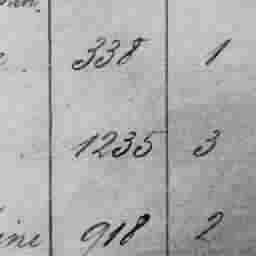 338 1
1235 3
918 2